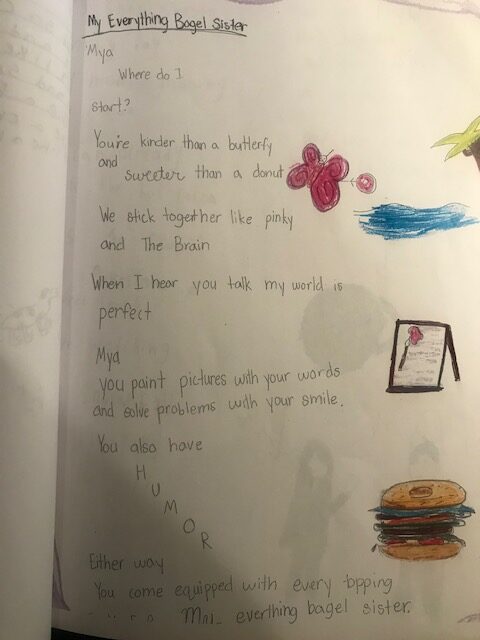 My Everything Bagel Sister
Mya
Where do I
start?
You're kinder than a butlerfy
and sweeter than a donut
We stick together like pinky
and The Brain
When I hear you talk my world is
perfect
Mya
you paint pictures with your words
and solve problems with your smile.
You also have
H
U
M
O
R
Either way
You come equipped with every topping
everthing bagel sister.